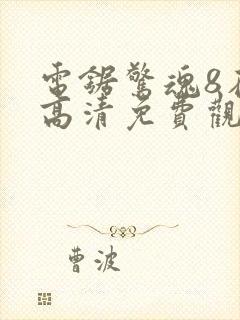 電鋸驚魂8在
高清免費觀
曹波